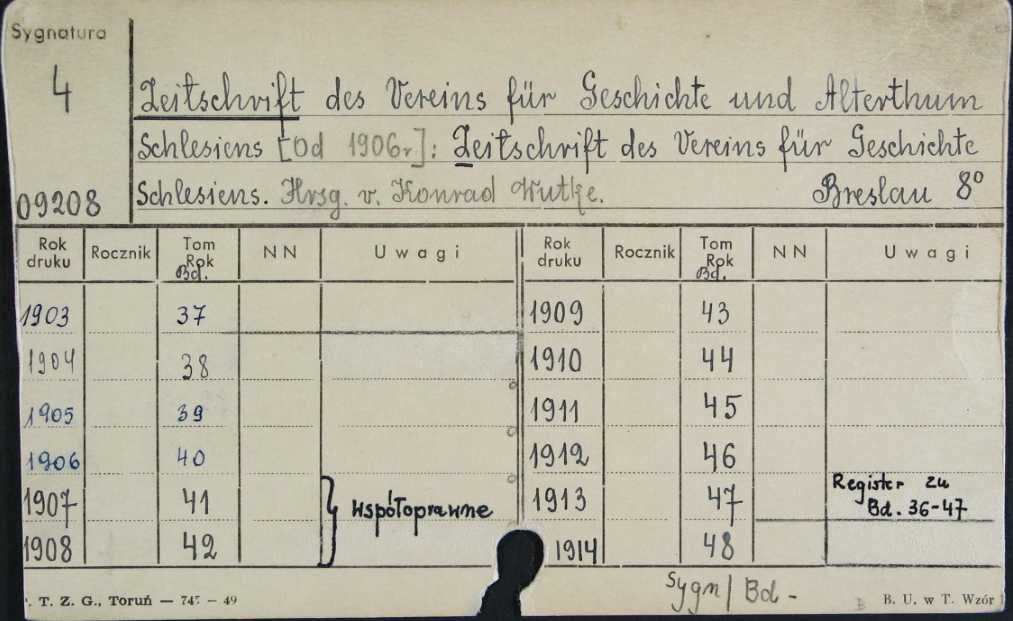 Sygnatura
4
09208
Zeitschrift des Vereins für Geschichte und Alterthum
Schlesiens [Od 1906r.]: Zeitschrift des Vereins für Geschichte
Schlesiens. Hrsg. v. Konrad Wutke. Breslau 8°
Rok druku Rocznik Tom Rok Bd. NN Uwagi Rok druku Rocznik Tom Rok Bd. NN Uwagi
1903 37 1909 43
1904 38 1910 44
1905 39 1911 45
1906 40 1912 46
1907 41 współoprawne 1913 47 Register zu Bd. 36-47
1908 42 1914 48
Sygn/ Bd -
T. Z. G., Toruń — 747 — 49 B. U. w T. Wzór